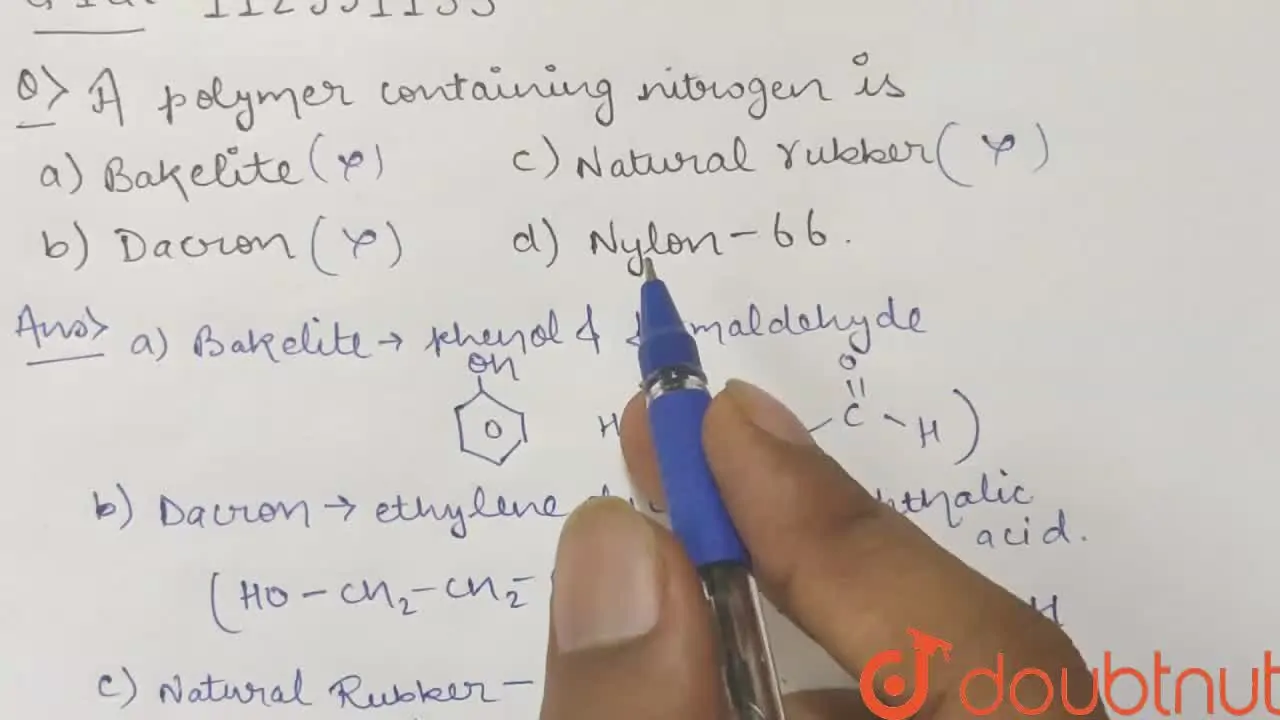 Q> A polymer containing nitrogen is
a) Bakelite (φ) c) Natural rubber (φ)
b) Dacron (φ) d) Nylon-66.
Ans> a) Bakelite → phenol &
OH
O
C
H
H )
b) Dacron → ethylene
acid.
(HO - CH2 - CH2 -
H
c) Natural Rubber -
doubtnut